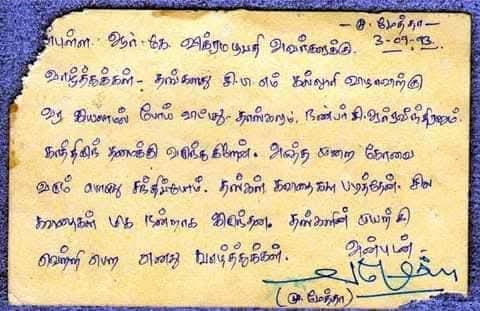 - மு. மேத்தா -
3-09-93
அன்புள்ள ஆர். கே. விக்ரமபூபதி அவர்களுக்கு.
வாழ்த்துக்கள் - தங்களது சி.ப.எம் கல்லூரி விழாவிற்கு
வர இயலாமல் போய் விட்டது - தாங்களும், நண்பர் சி. ஆர். ரவீந்திரனும்
காத்திருந்த தலைக்கு வருந்துகிறேன். அடுத்த முறை கோவை
வரும் பொழுது சந்திப்போம். தங்கள் கவிதைகளை படித்தேன். சில
கவிதைகள் மிக நன்றாக இருந்தன. தங்களின் முயற்சி
வெற்றி பெற எனது வாழ்த்துக்கள்.
அன்புடன் -
(மு. மேத்தா)